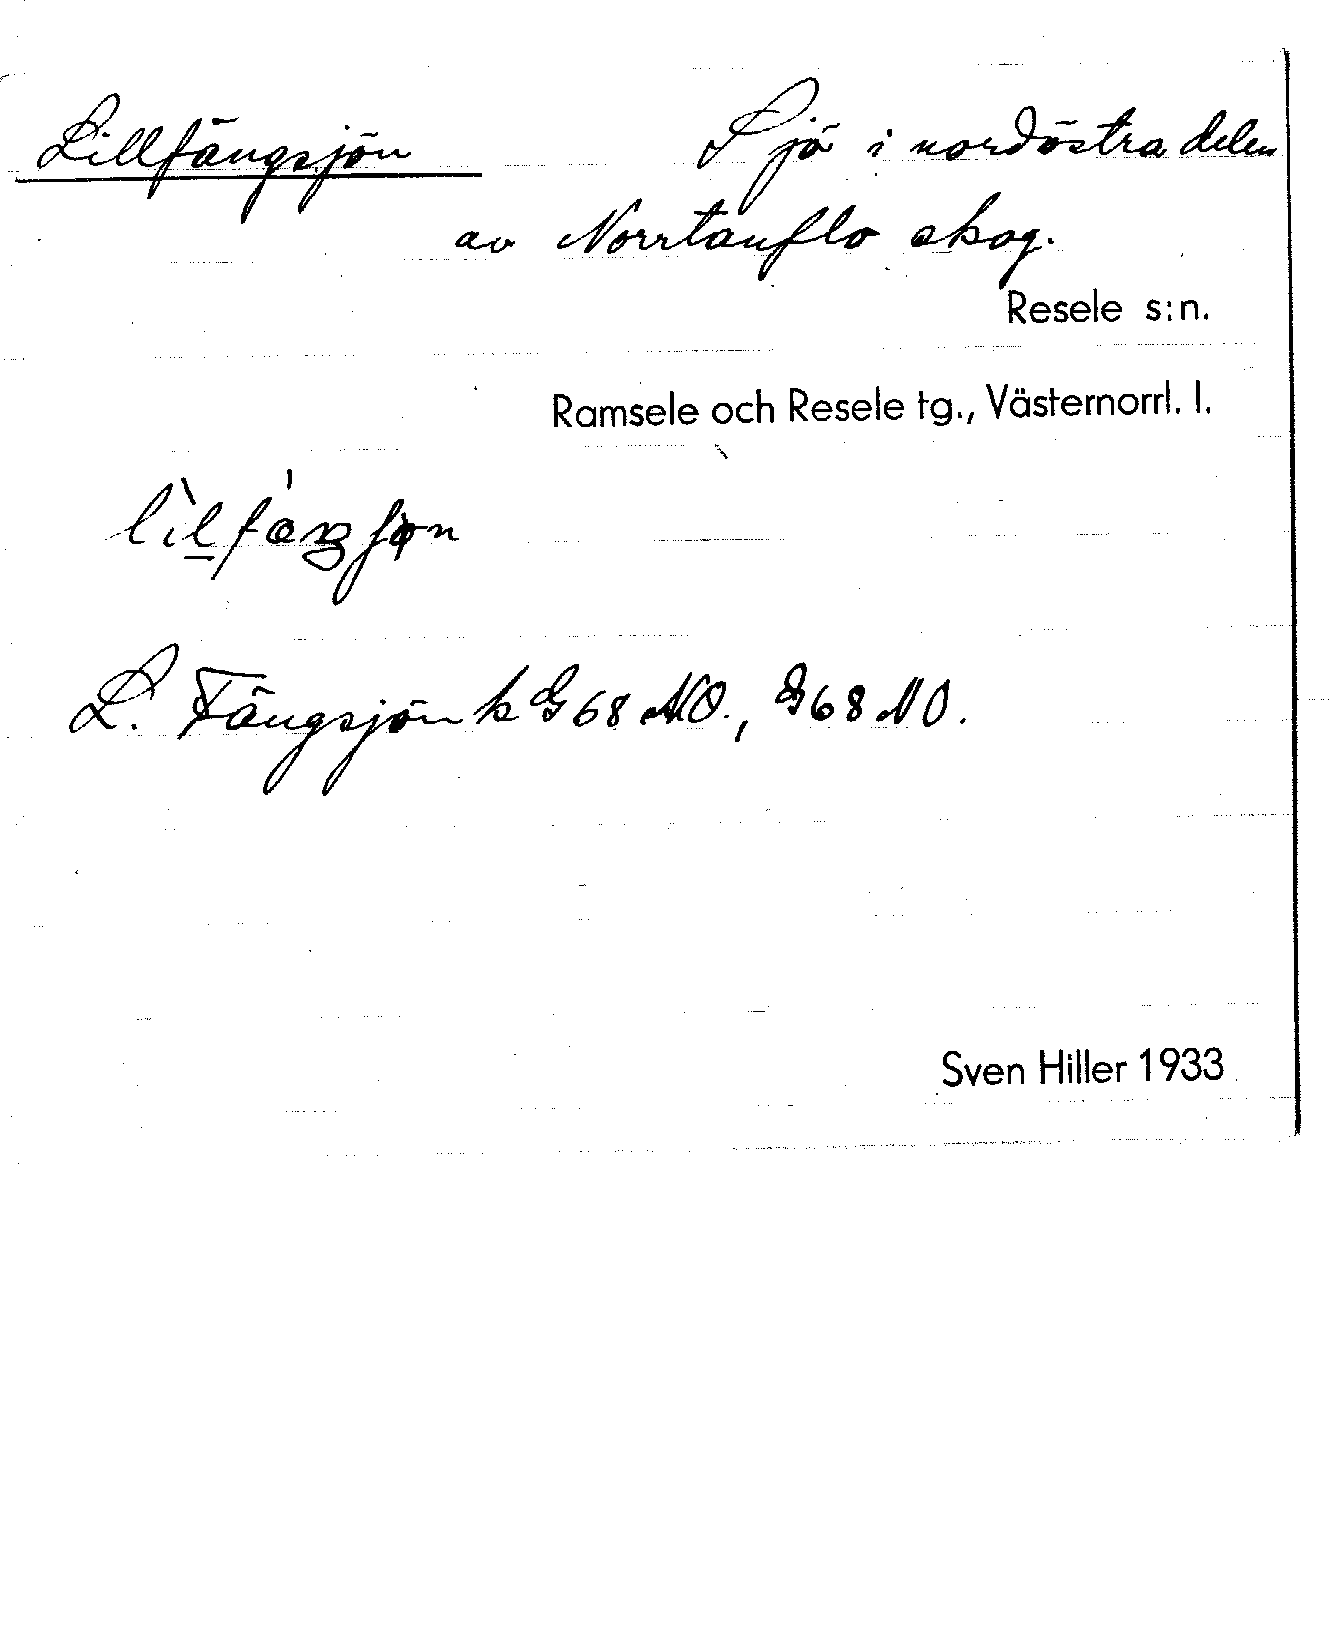 Lillfängsjön Sjö i nordöstra delen
av Norrtanflo skog.
Resele s:n.
Ramsele och Resele tg., Västernorrl. l.
L. Fängsjön k G 68 NO., G 68 NO.
Sven Hiller 1933